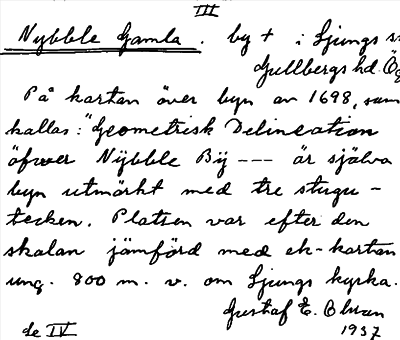 III
Nybble Gamla. by + i Ljungs s
Gullbergs hd. Ög
På kartan över byn av 1698, som
kallas: "Geometrisk Delineation
öfwer Nÿbble Bÿ --- är själva
byn utmärkt med tre stugu-
tecken. Platsen var efter den
skalan jämförd med ek-kartan
ung. 800 m. v. om Ljungs kyrka.
Gustaf E. Olsson
1937
de IV